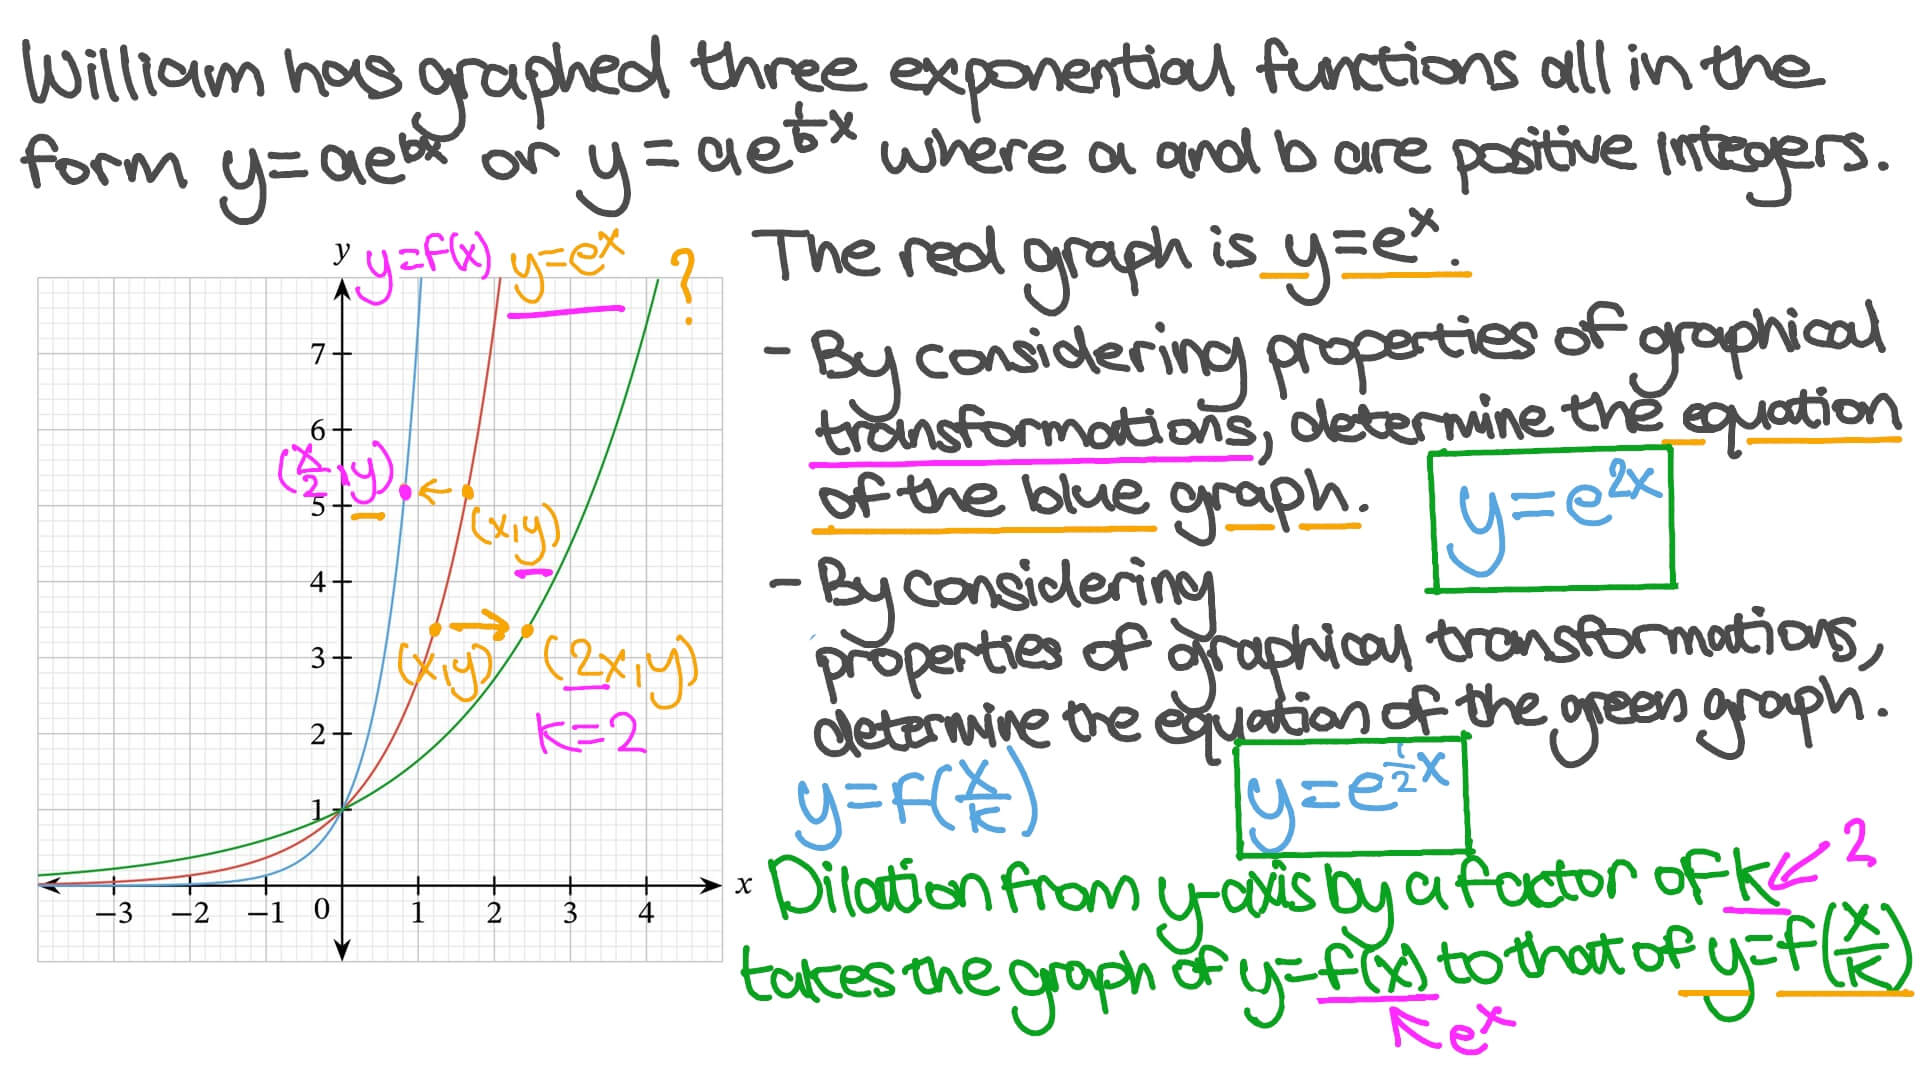 William has graphed three exponential functions all in the
form y=ae^{bx} or y=ae^{\frac{1}{b}x} where a and b are positive integers.
The red graph is y=e^x.
y
y=f(x)
y=e^x
?
- By considering properties of graphical
transformations, determine the equation
of the blue graph.
y=e^{2x}
- By considering
properties of graphical transformations,
determine the equation of the green graph.
7
6
(\frac{x}{2},y)
5
(x,y)
4
3
(x,y)
(2x,y)
k=2
2
1
y=f(\frac{x}{k})
y=e^{\frac{1}{2}x}
−3 −2 −1 0 1 2 3 4 x
Dilation from y-axis by a factor of k
2
takes the graph of y=f(x) to that of y=f(\frac{x}{k})
e^x